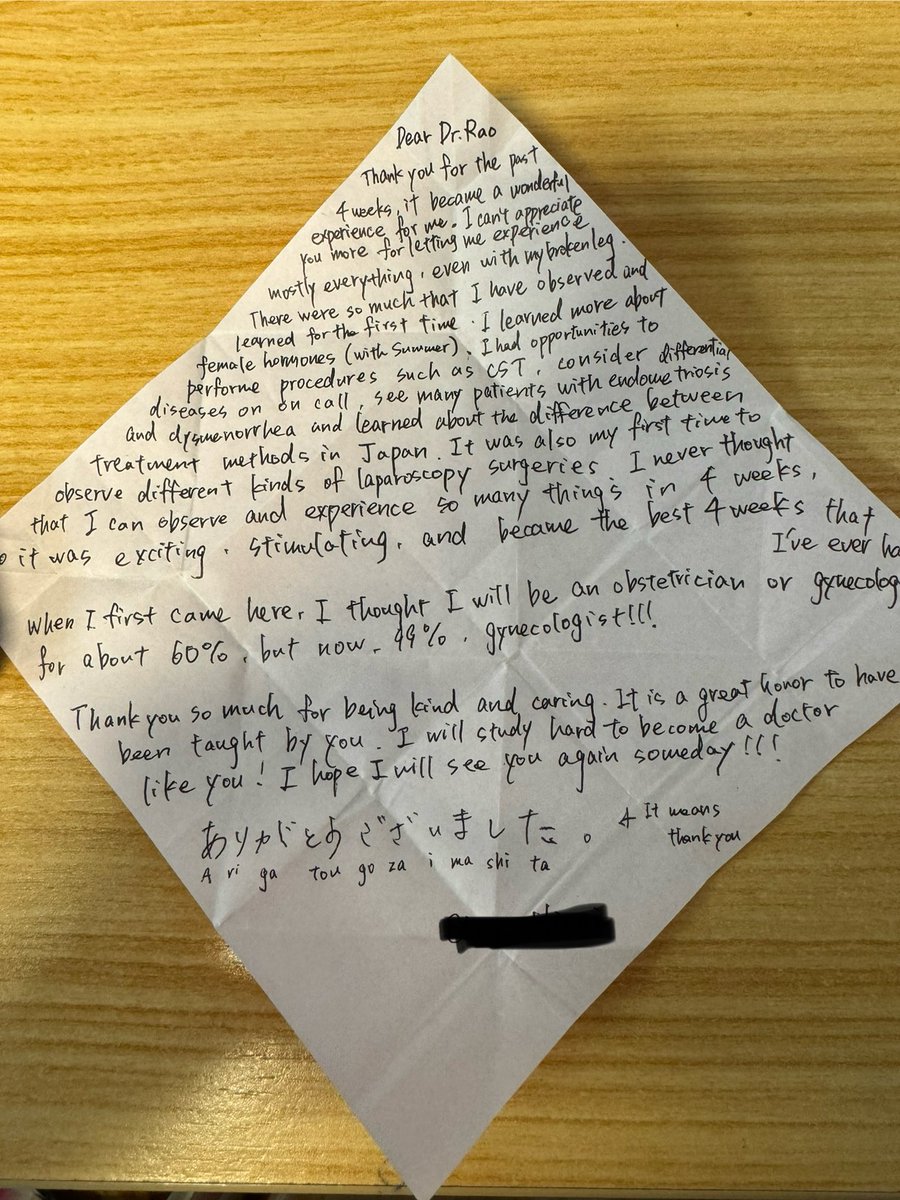 Dear Dr.Rao
Thank you for the past
4 weeks, it became a wonderful
experience for me. I can't appreciate
you more for letting me experience
mostly everything, even with my broken leg.
There were so much that I have observed and
learned for the first time. I learned more about
female hormones (with Summer). I had opportunities to
performe procedures such as CST, consider differential
diseases on on call, see many patients with endometriosis
and dysmenorrhea and learned about the difference between
treatment methods in Japan. It was also my first time to
observe different kinds of laparoscopy surgeries. I never thought
that I can observe and experience so many thing's in 4 weeks,
it was exciting, stimulating, and became the best 4 weeks that
I've ever ha
When I first came here, I thought I will be an obstetrician or gynecolog
for about 60%, but now, 99%, gynecologist!!!
Thank you so much for being kind and caring. It is a great honor to have
been taught by you. I will study hard to become a doctor
like you! I hope I will see you again someday!!!
ありがとうございました。 It means
thank you
A ri ga tou go za i ma shi ta